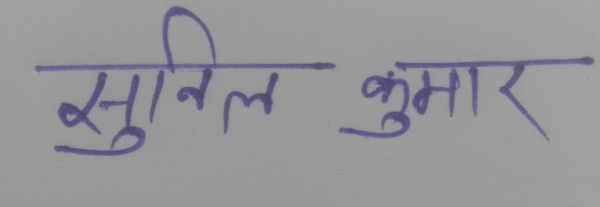 सुनिल कुमार